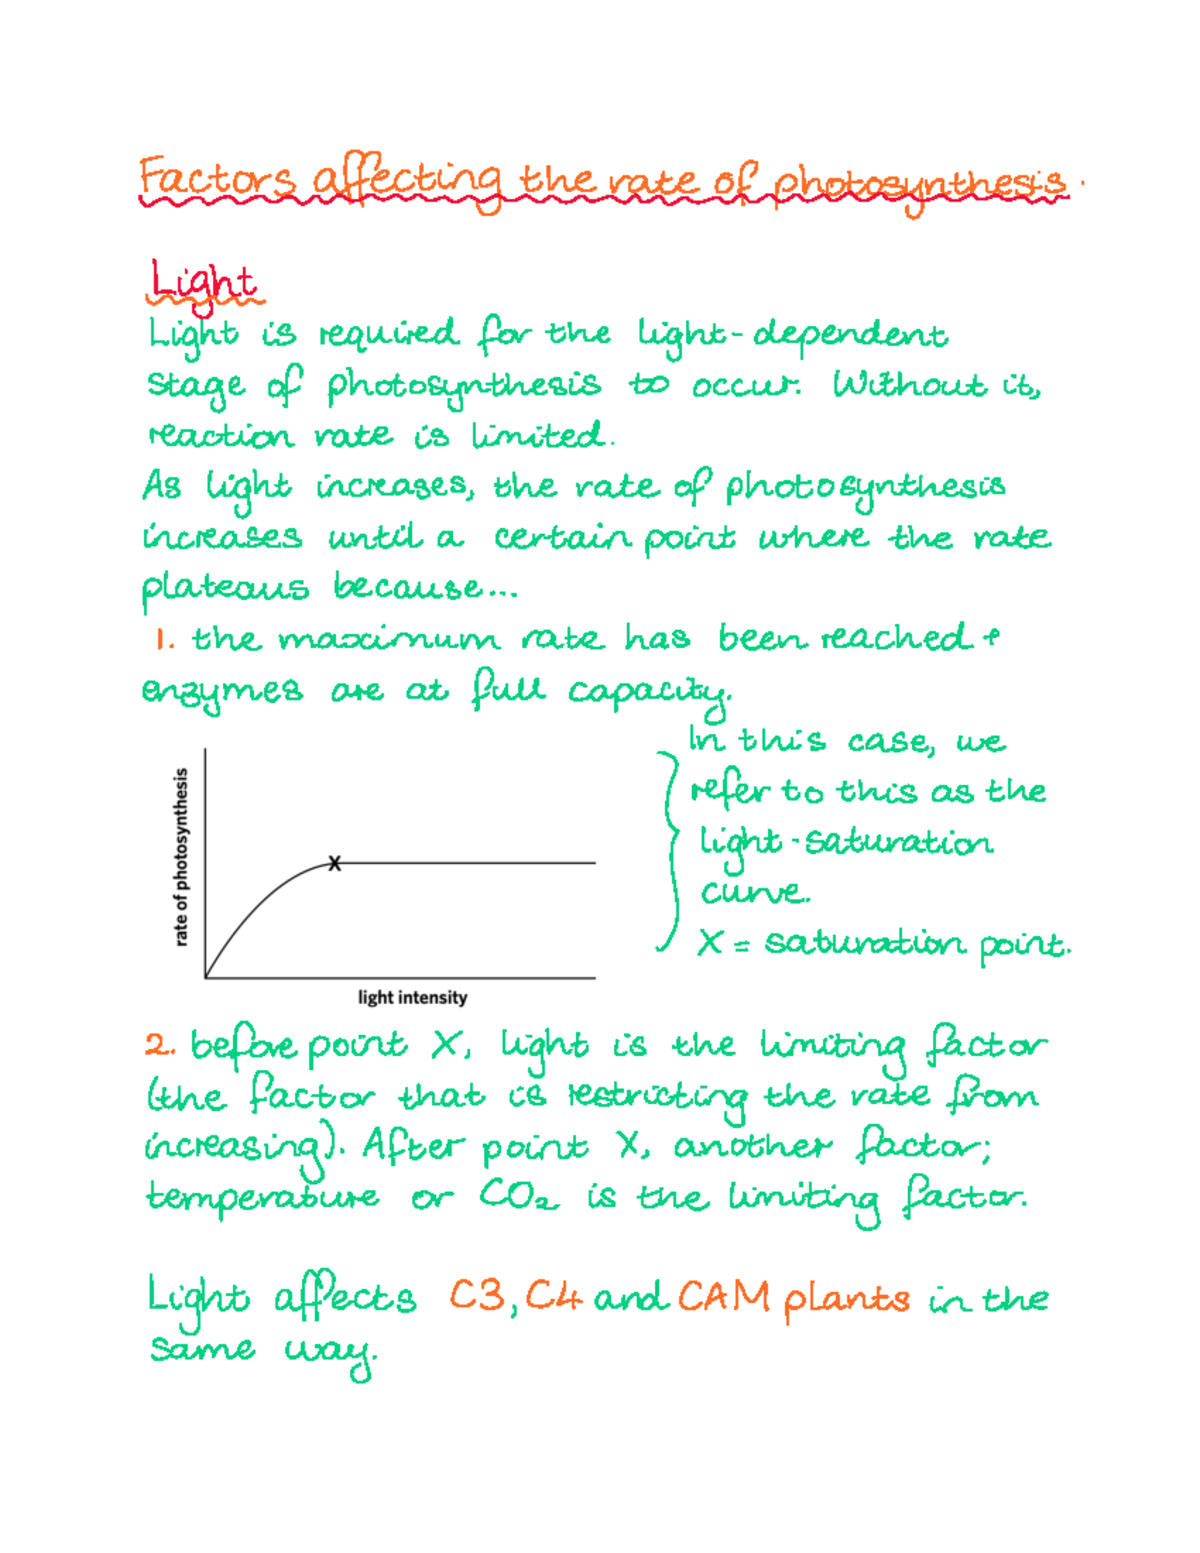 Factors affecting the rate of photosynthesis.
Light
Light is required for the light-dependent
stage of photosynthesis to occur. Without it,
reaction rate is limited.
As light increases, the rate of photosynthesis
increases until a certain point where the rate
plateaus because...
1. the maximum rate has been reached +
enzymes are at full capacity.
In this case, we
refer to this as the
light-saturation
curve.
X = saturation point.
rate of photosynthesis
X
light intensity
2. before point X, light is the limiting factor
(the factor that is restricting the rate from
increasing). After point X, another factor;
temperature or CO₂ is the limiting factor.
Light affects C3, C4 and CAM plants in the
same way.